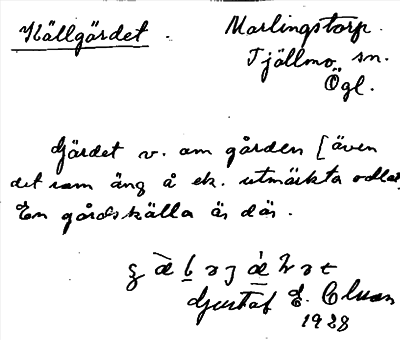 Källgärdet.
Marlingstorp.
Tjällmo sn.
Ögl.
Gärdet v. om gården [även
det som äng å ek. utmärkta odlas
En gårdskälla är där.
Gustaf E.
1928